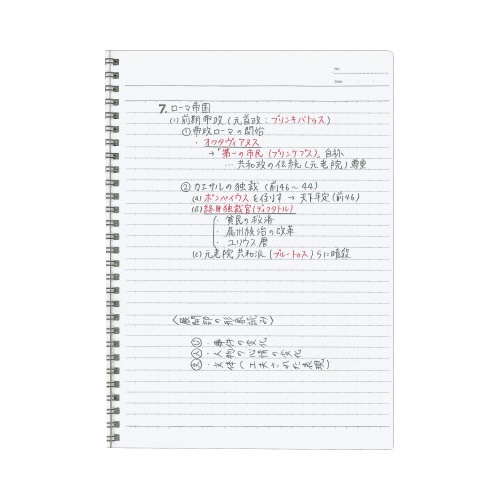 No.
Date
7. ローマ帝国
(1) 前期帝政 (元首政：プリンキパトゥス)
① 帝政ローマの開始
・オクタヴィアヌス
→「第一の市民 (プリンケプス)」自称
… 共和政の伝統 (元老院) 尊重
② カエサルの独裁 (前46～44)
(a) ポンペイウスを倒す → 天下平定 (前46)
(b) 終身独裁官 (ディクタトル)
・貧民の救済
・属州統治の改革
・ユリウス暦
(c) 元老院共和派 (ブルートゥス) らに暗殺
〈展開部の形象読み〉
・事件の変化
・人物の心情の変化
文・文体 (工夫された表現)